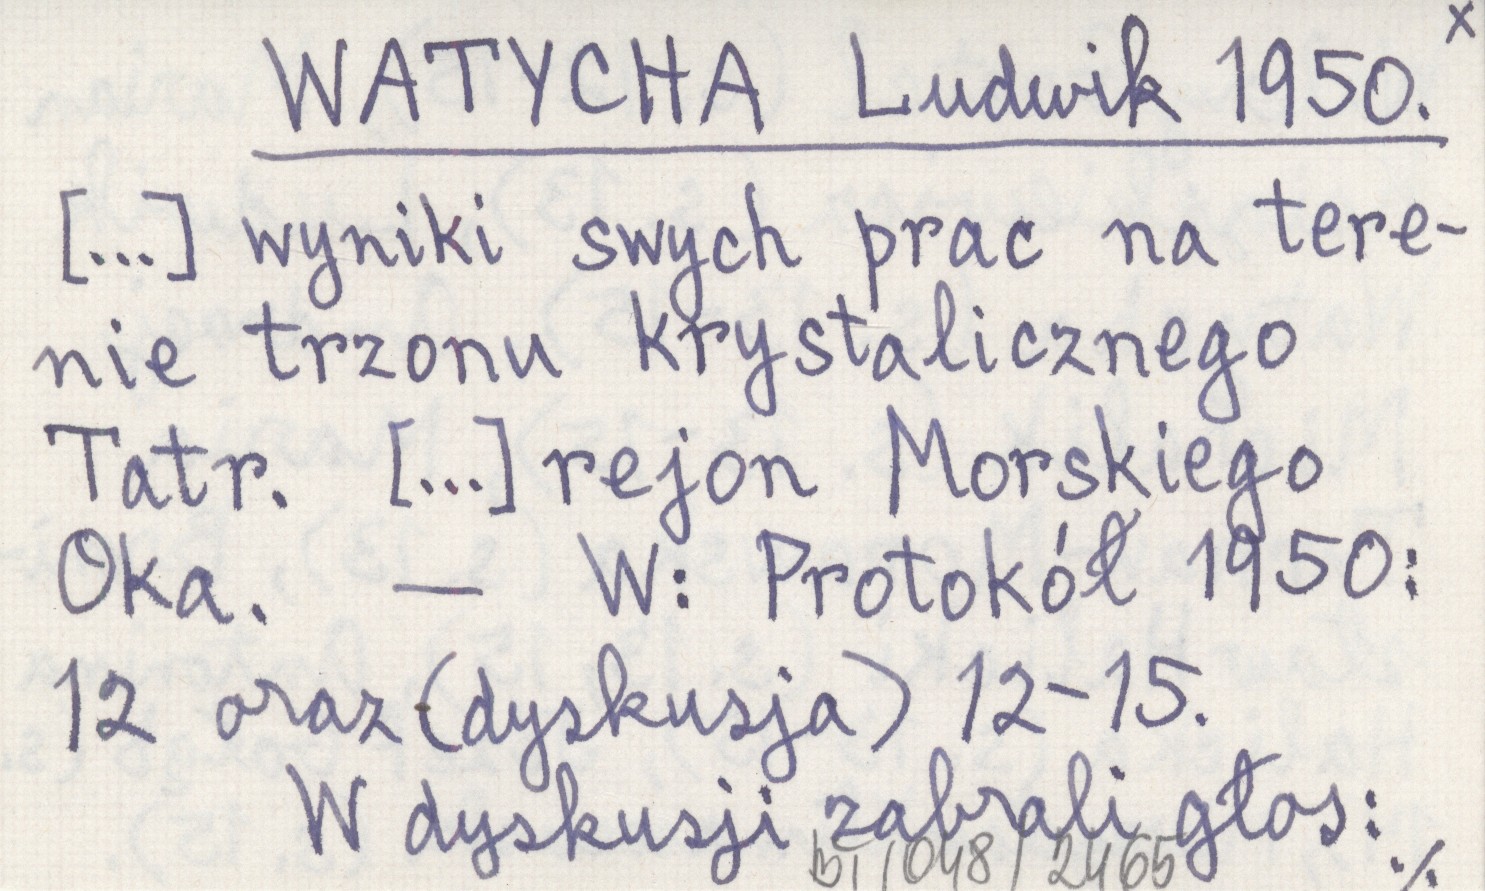 x
WATYCHA Ludwik 1950.
[...] wyniki swych prac na tere-
nie trzonu krystalicznego
Tatr. [...] rejon Morskiego
Oka. — W: Protokół 1950:
12 oraz (dyskusja) 12-15.
W dyskusji zabrali głos:
bi/048/2465
./.